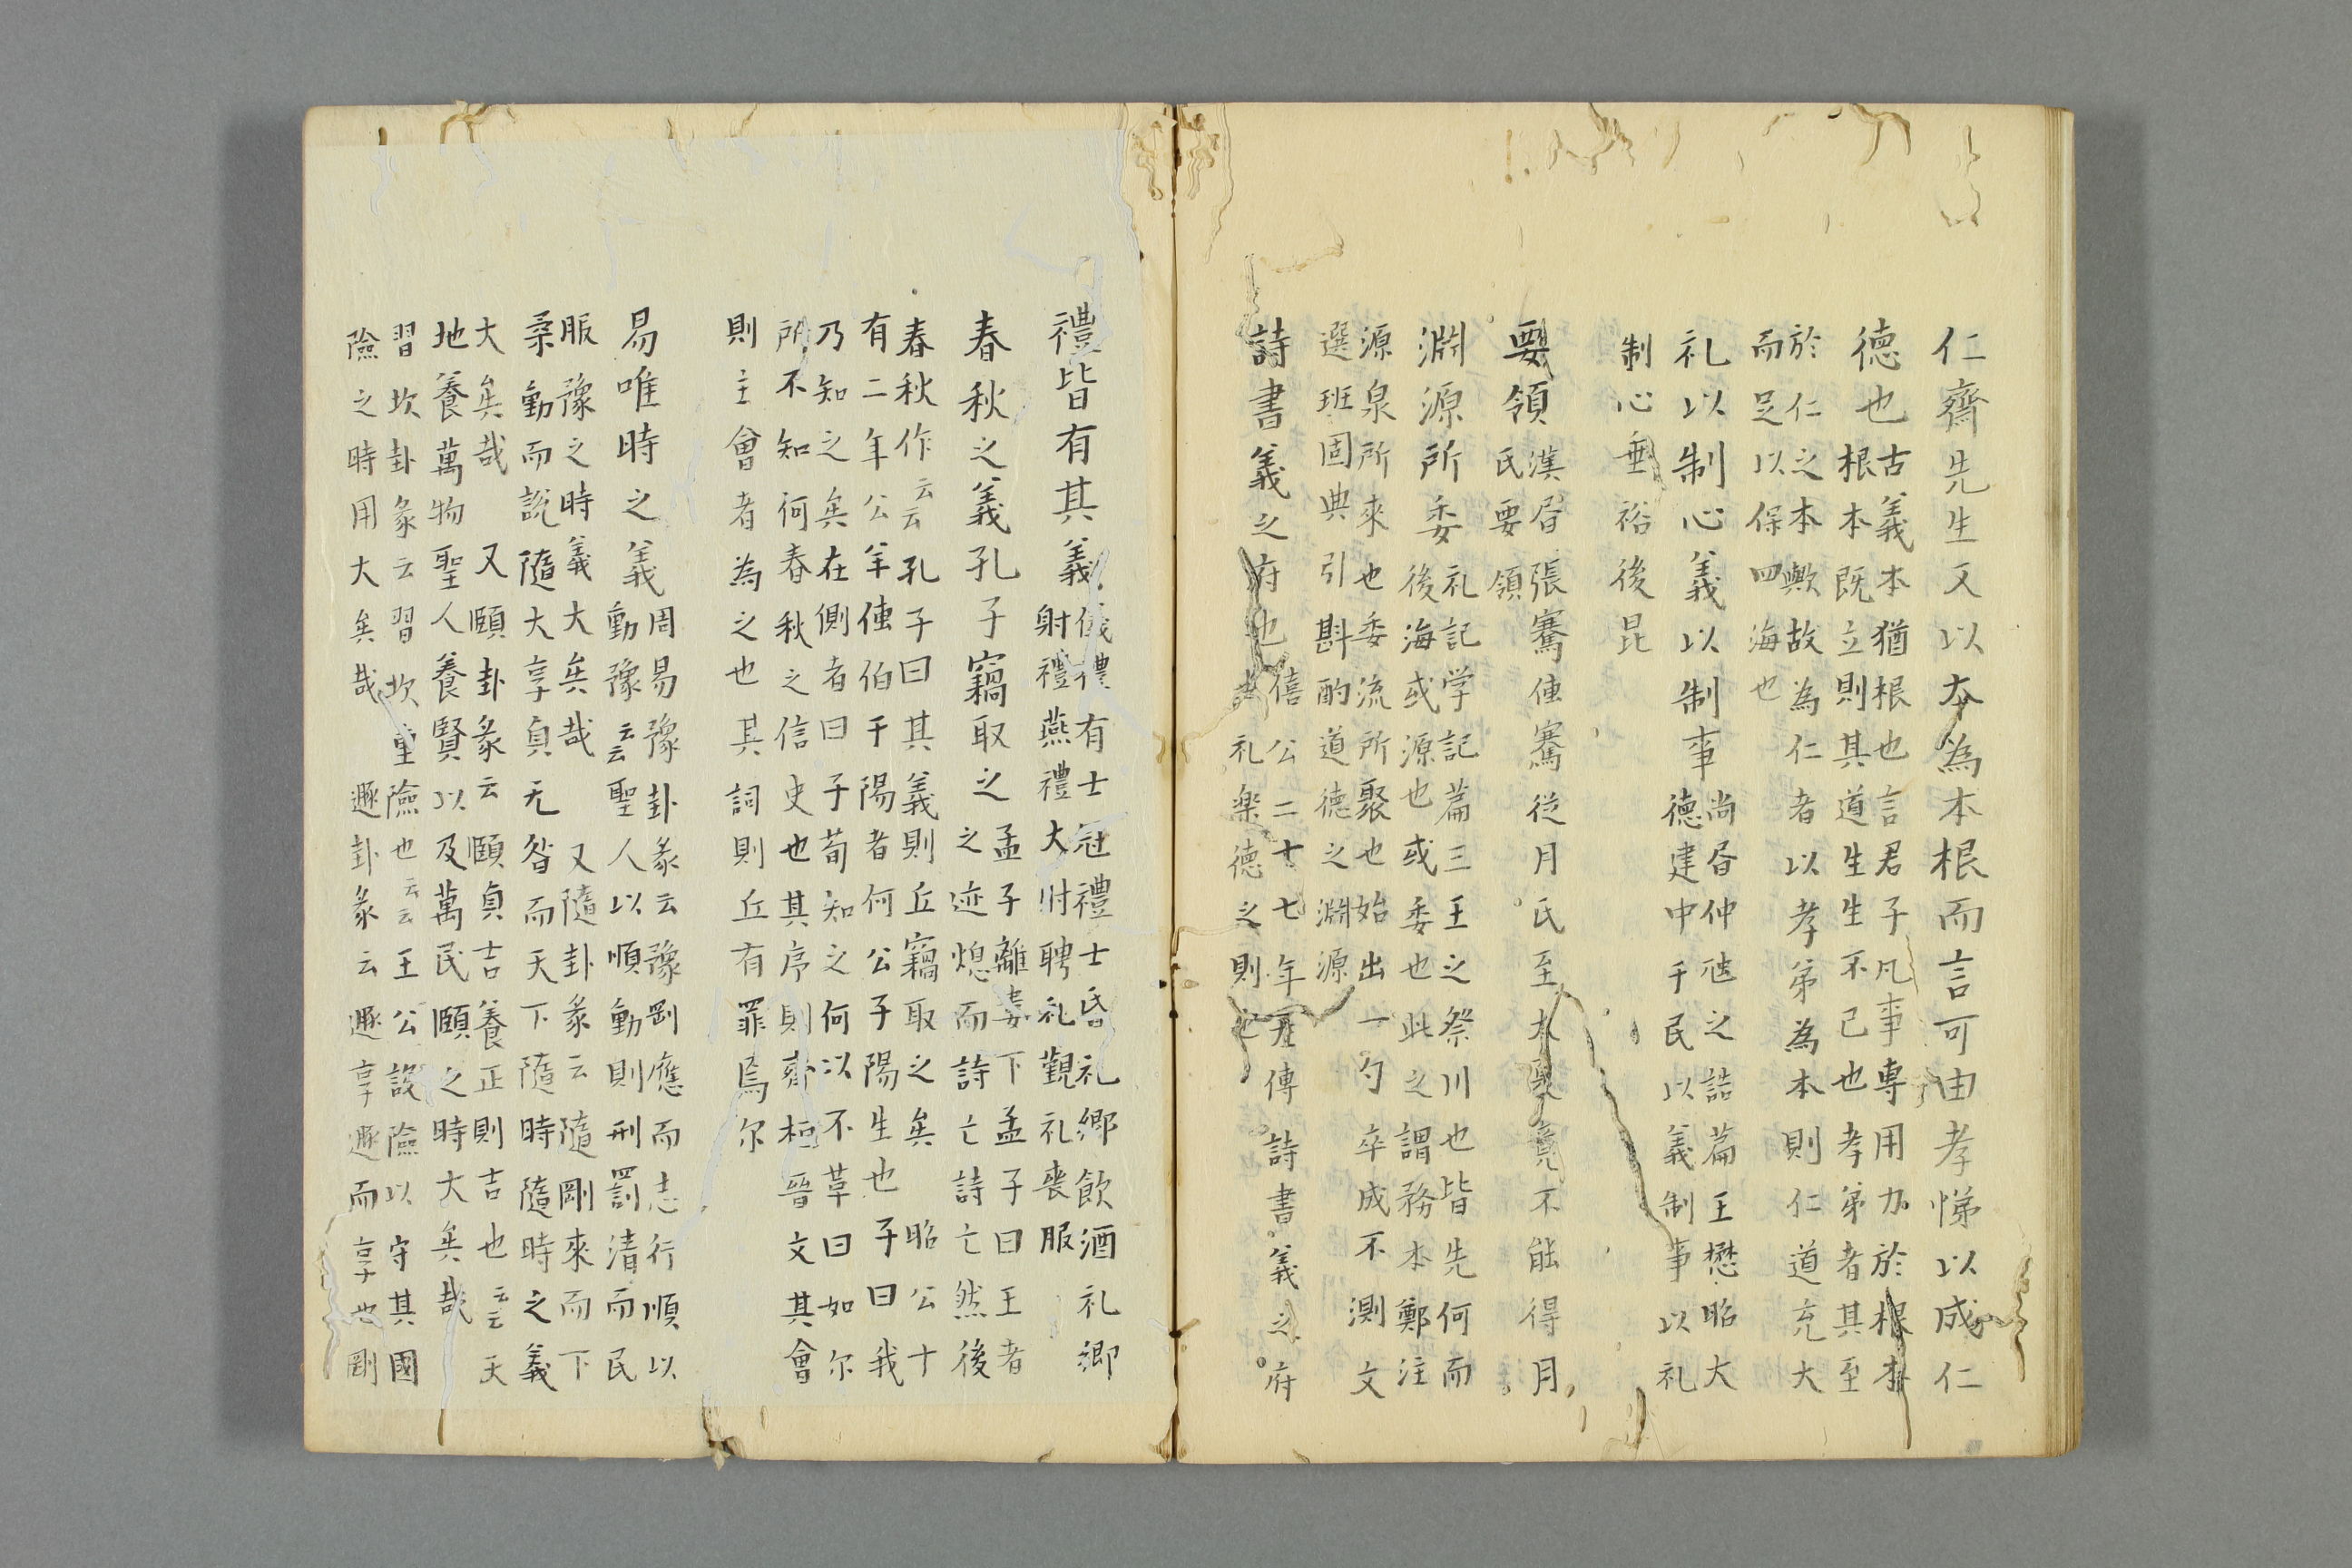 仁齋先生又以本為本根而言可由孝悌以成仁
德也
古義本猶根也言君子凡事專用力於根本
根本既立則其道生生不已也孝弟者其至
於仁之本歟故為仁者以孝弟為本則仁道充大
而足以保四海也
礼以制心義以制事
尚昏仲虺之誥篇王懋昭大
德建中于民以義制事以礼
制心垂裕後昆
要領
漢昏張騫傳騫從月氏至大夏竟不能得月
氏要領
淵源所委
礼記学記篇三王之祭川也皆先何而
後海或源也或委也此之謂務本鄭注
源泉所來也委流所聚也始出一勺卒成不測文
選班固典引斟酌道德之淵源
詩書義之府也
僖公二十七年左傳詩書義之府
也礼楽德之則也
禮皆有其義
儀禮有士冠禮士昏礼鄉飲酒礼鄉
射禮燕禮大射聘礼觀礼喪服
春秋之義孔子竊取之
孟子離婁下孟子曰王者
之迹熄而詩亡詩亡然後
春秋作云云孔子曰其義則丘竊取之矣昭公十
有二年公羊傳伯于陽者何公子陽生也子曰我
乃知之矣在側者曰子苟知之何以不革曰如尔
所不知何春秋之信史也其序則齊桓晉文其會
則主會者為之也其詞則丘有罪焉尔
易唯時之義
周易豫卦彖云豫剛應而志行順以
動豫云云聖人以順動則刑罰清而民
服豫之時義大矣哉又隨卦彖云隨剛來而下
柔動而說隨大享貞无咎而天下隨時隨時之義
大矣哉又頤卦彖云頤貞吉養正則吉也云云天
地養萬物聖人養賢以及萬民頤之時大矣哉
習坎卦彖云習坎重險也云云王公設險以守其國
險之時用大矣哉遯卦彖云遯享遯而享也剛